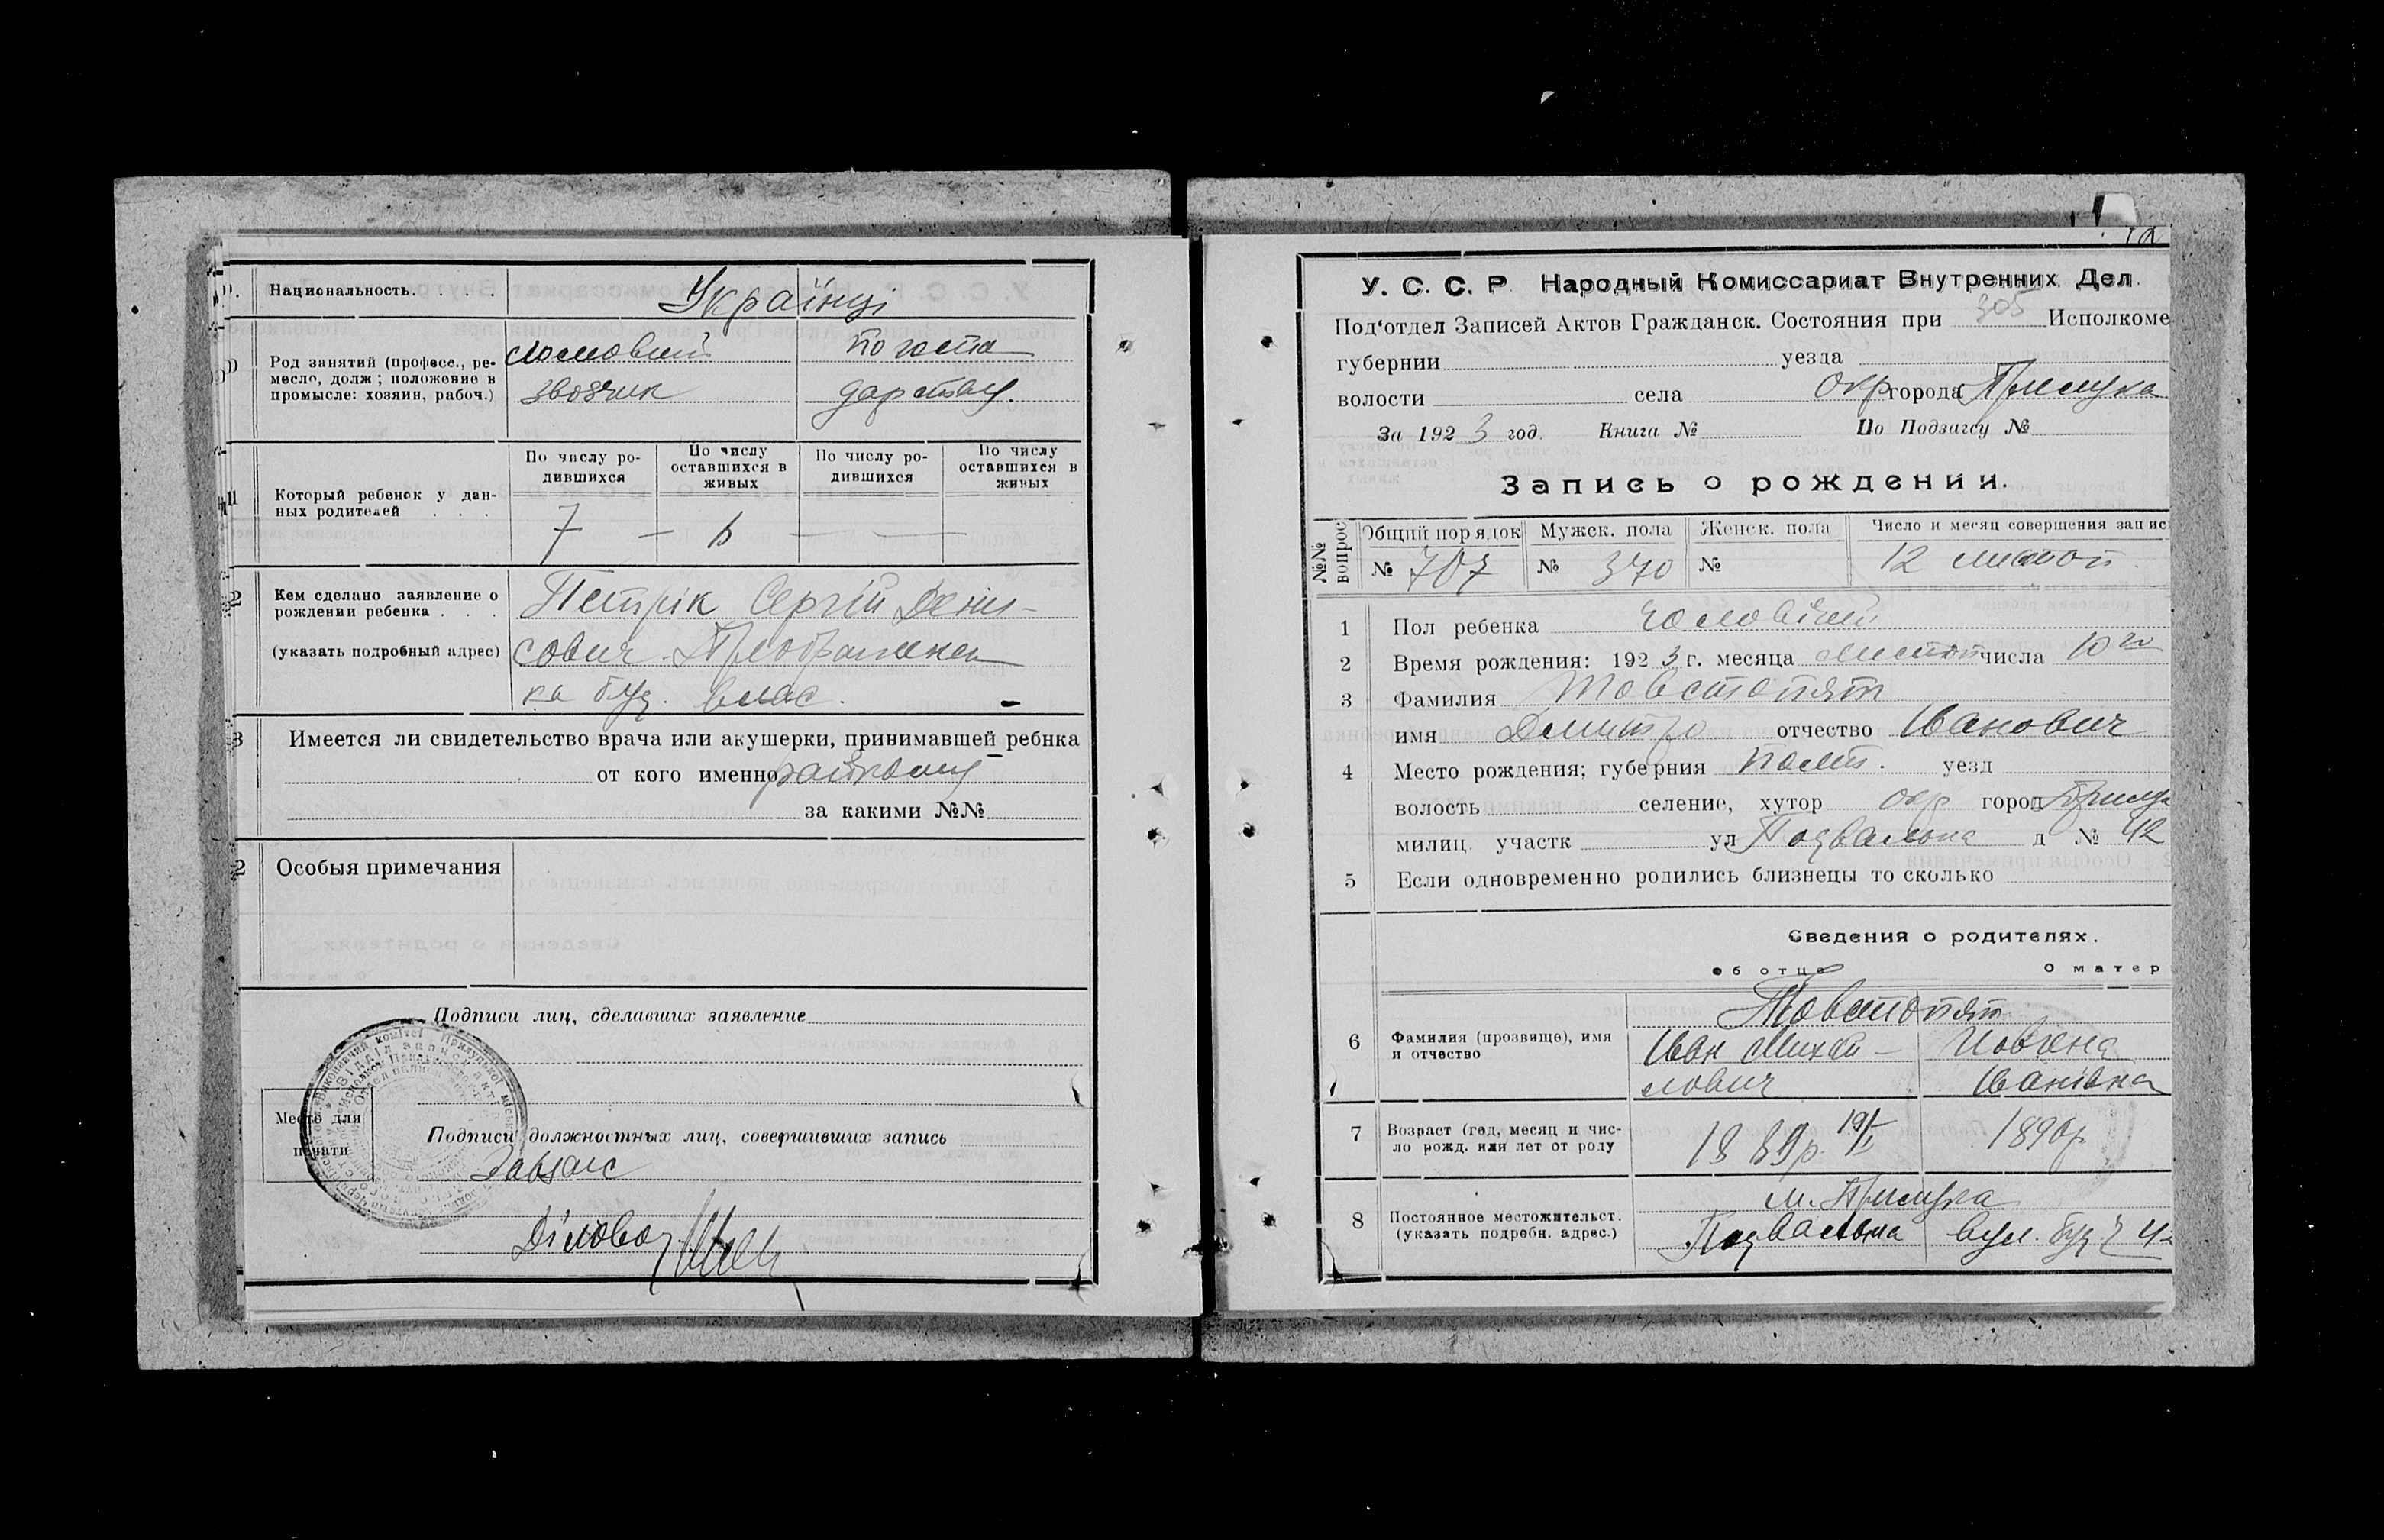 Национальность. . . . .
Українці
Род занятий (професс., ре-
месло, долж; положение в
промысле: хозяин, рабоч.)
ломовий
звозчик
по госпо
дарству.
11
Который ребенок у дан-
ных родителей . . .
По числу ро-
дившихся
По числу
оставшихся в
живых
По числу ро-
дившихся
По числу
оставшихся в
живых
7 — 6 — —
Кем сделано заявление о
рождении ребенка . . .
(указать подробный адрес)
Петрік Сергій Дени-
сович. Преображен
ка буд. влас.
3
Имеется ли свидетельство врача или акушерки, принимавшей ребнка
от кого именно
за какими №№
2
Особыя примечания
Подписи лиц, сделавших заявление
Место для
печати
Подписи должностных лиц, совершивших запись
Завзагс
Діловод
12
У. С. С. Р. Народный Комиссариат Внутренних Дел.
305
Под‘отдел Записей Актов Гражданск. Состояния при Исполкоме
губернии уезда
волости села окр города Прилука
За 1923 год. Книга № По Подзагсу №
Запись о рождении.
№№ вопрос
Общий порядок
Мужск. пола
Женск. пола
Число и месяц совершения запис
№ 707
№ 370
№
12 листоп
1 Пол ребенка чоловічий
2 Время рождения: 1923 г. месяца листоп числа 10го
3 Фамилия Товстопят
имя Дмитро отчество Іванович
4 Место рождения; губерния Полт. уезд
волость селение, хутор окр город Прилук
милиц. участк ул Подвальна д № 42
5 Если одновременно родились близнецы то сколько
Сведения о родителях.
об отце
О матер
6
Фамилия (прозвище), имя
и отчество
Товстопят
Іван Михай-
лович
Иовгена
Іванівна
7
Возраст (год, месяц и чис-
ло рожд. или лет от роду
1889р.
1890р
8
Постоянное местожительст.
(указать подробн. адрес.)
м. Прилука
Подвальна вул. буд. ч 42